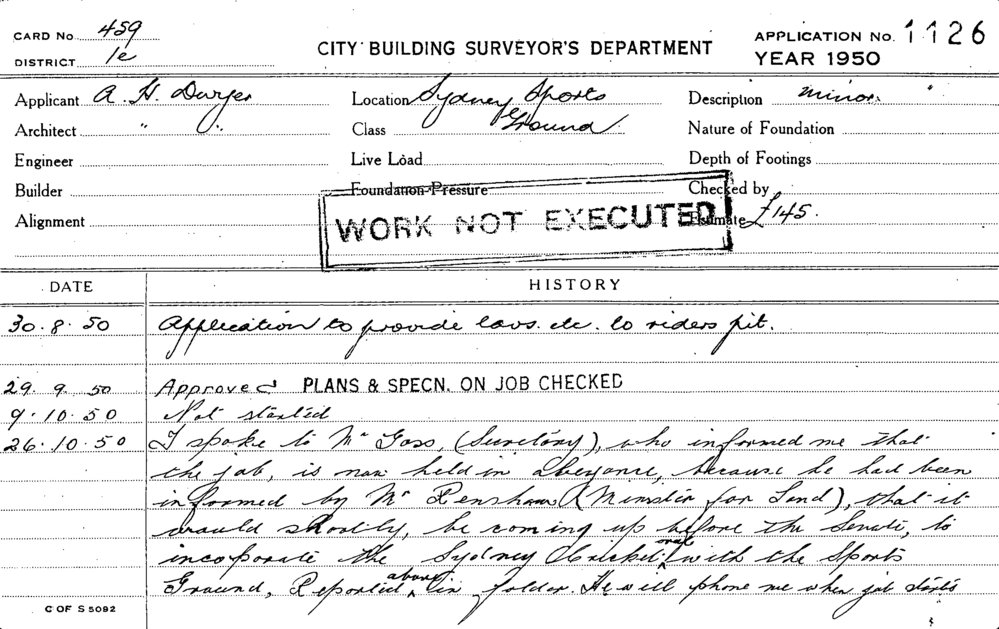 CARD No. 459
DISTRICT 1e
CITY BUILDING SURVEYOR'S DEPARTMENT
APPLICATION No. 1126
YEAR 1950
Applicant A. H. Dwyer
Location Sydney Sports
Description minor.
Architect " "
Class Ground
Nature of Foundation
Engineer
Live Load
Depth of Footings
Builder
Foundation Pressure
Checked by
Alignment
WORK NOT EXECUTED
Estimate £145.
DATE HISTORY
30.8.50 Application to provide lavs. etc. to riders pit.
29.9.50 Approved PLANS & SPECN. ON JOB CHECKED
9.10.50 Not started
26.10.50 I spoke to Mr Goss, (Secretary), who informed me that
the job, is now held in abeyance, because he had been
informed by Mr Renshaw (Minister for Land), that it
would shortly, be coming up before the Senate, to
incorporate the Sydney Cricket with the Sports
Ground, Reported above in folder. He will phone me when job starts
C OF S 5092